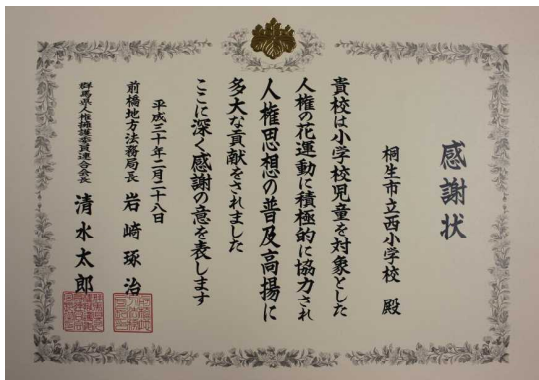 感謝状
桐生市立西小学校 殿
貴校は小学校児童を対象とした
人権の花運動に積極的に協力され
人権思想の普及高揚に
多大な貢献をされました
ここに深く感謝の意を表します
平成三十年二月二十八日
前橋地方法務局長 岩﨑琢治
群馬県人権擁護委員連合会長 清水太郎